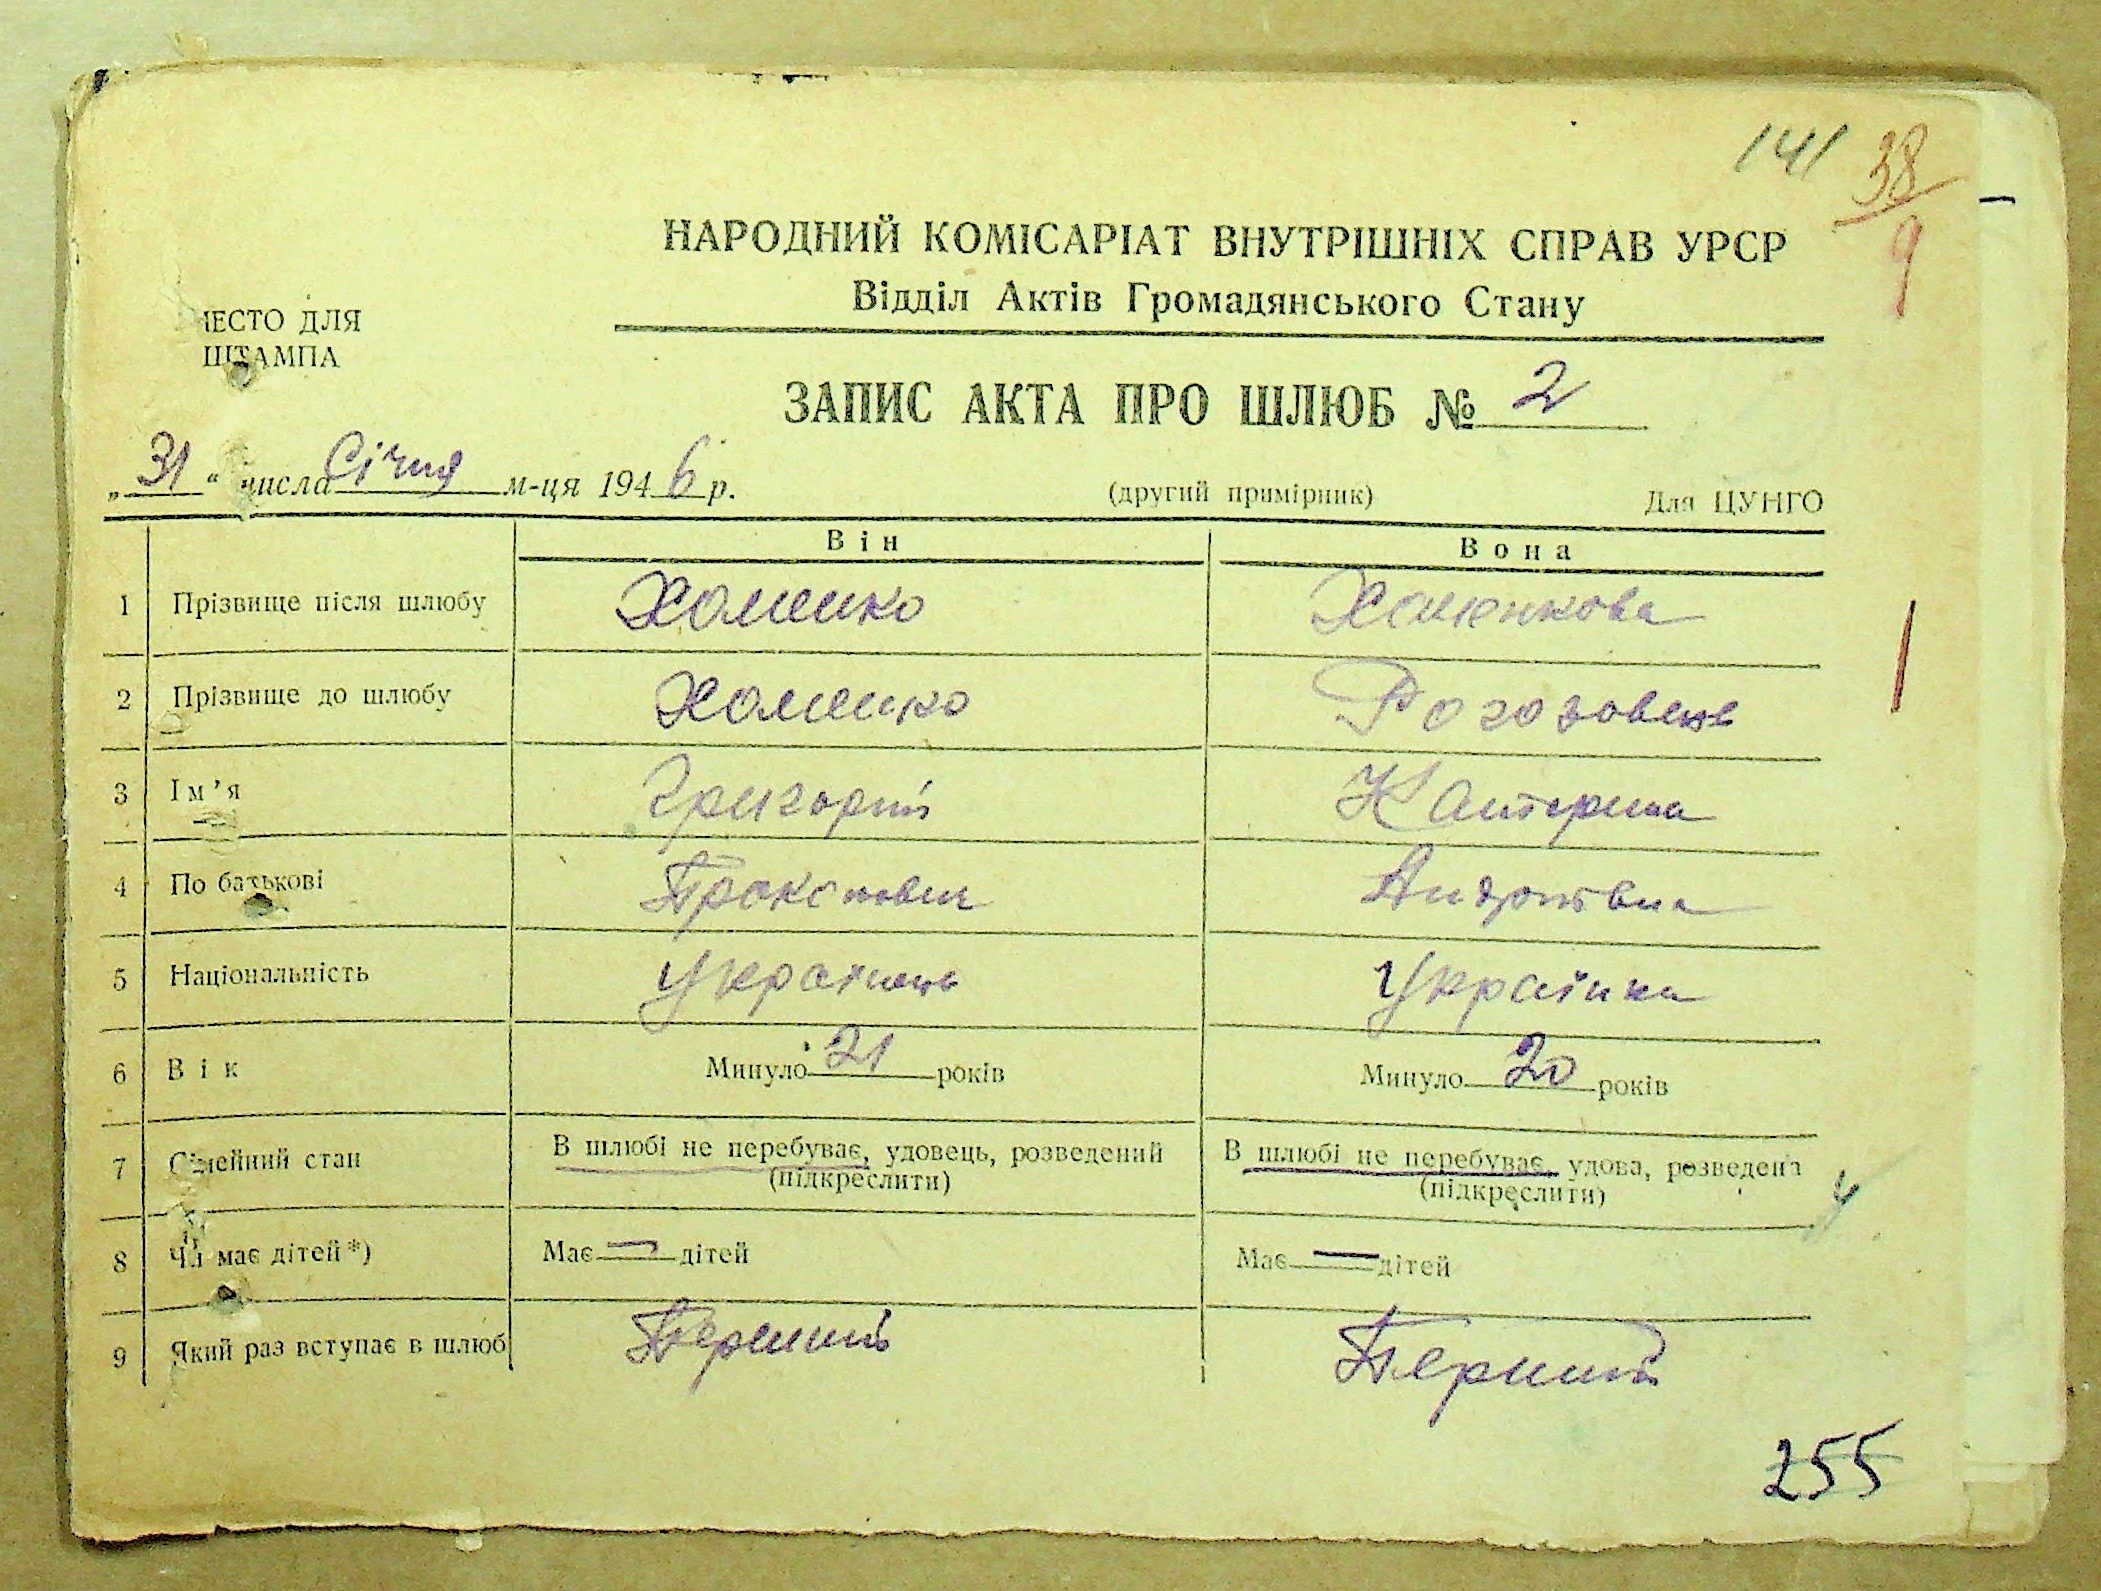 141 38/9
НАРОДНИЙ КОМІСАРІАТ ВНУТРІШНІХ СПРАВ УРСР
Відділ Актів Громадянського Стану
МЕСТО ДЛЯ
ШТАМПА
ЗАПИС АКТА ПРО ШЛЮБ № 2
„31“ числа Січня м-ця 1946 р.
(другий примірник) Для ЦУНГО
Він Вона
1 Прізвище після шлюбу Хоменко Хоменкова
2 Прізвище до шлюбу Хоменко
3 Ім’я Григорій Катерина
4 По батькові Андріївна
5 Національність Українець Українка
6 Вік Минуло 21 років Минуло 20 років
7 Сімейний стан В шлюбі не перебуває, удовець, розведений В шлюбі не перебуває, удова, розведена
(підкреслити) (підкреслити)
8 Чи має дітей*) Має — дітей Має — дітей
9 Який раз вступає в шлюб Перший Перший
255